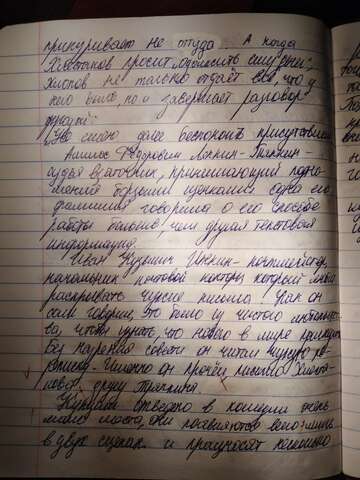 прикуривает не оттуда... А когда
Хлестаков просит "одолжить ему денег",
Хлопов не только отдаёт всё, что у
него было, но и завершает разговор
фразой:
"Не смею далее беспокоить присутствием
Аммос Фёдорович Ляпкин-Тяпкин-
судья взяточник, принимающий подно-
шения борзыми щенками одна его
фамилия говорила о его способе
работы больше, чем другая текстовая
информация.
Иван Кузьмич Шпекин - почтмейстер,
начальник почтовой конторы который любил
раскрывать чужие письма. Как он
сам говорил, это было из чистого любопытст-
ва, чтобы узнать, что нового в мире
Без зазрения совести он читал чужую пе-
реписку. Именно он прочёл письмо Хлеста-
кова другу Тряпичкину.
Купцам отведено в комедии очень
мало места, они появляются лишь
в двух сценах и произносят несколько